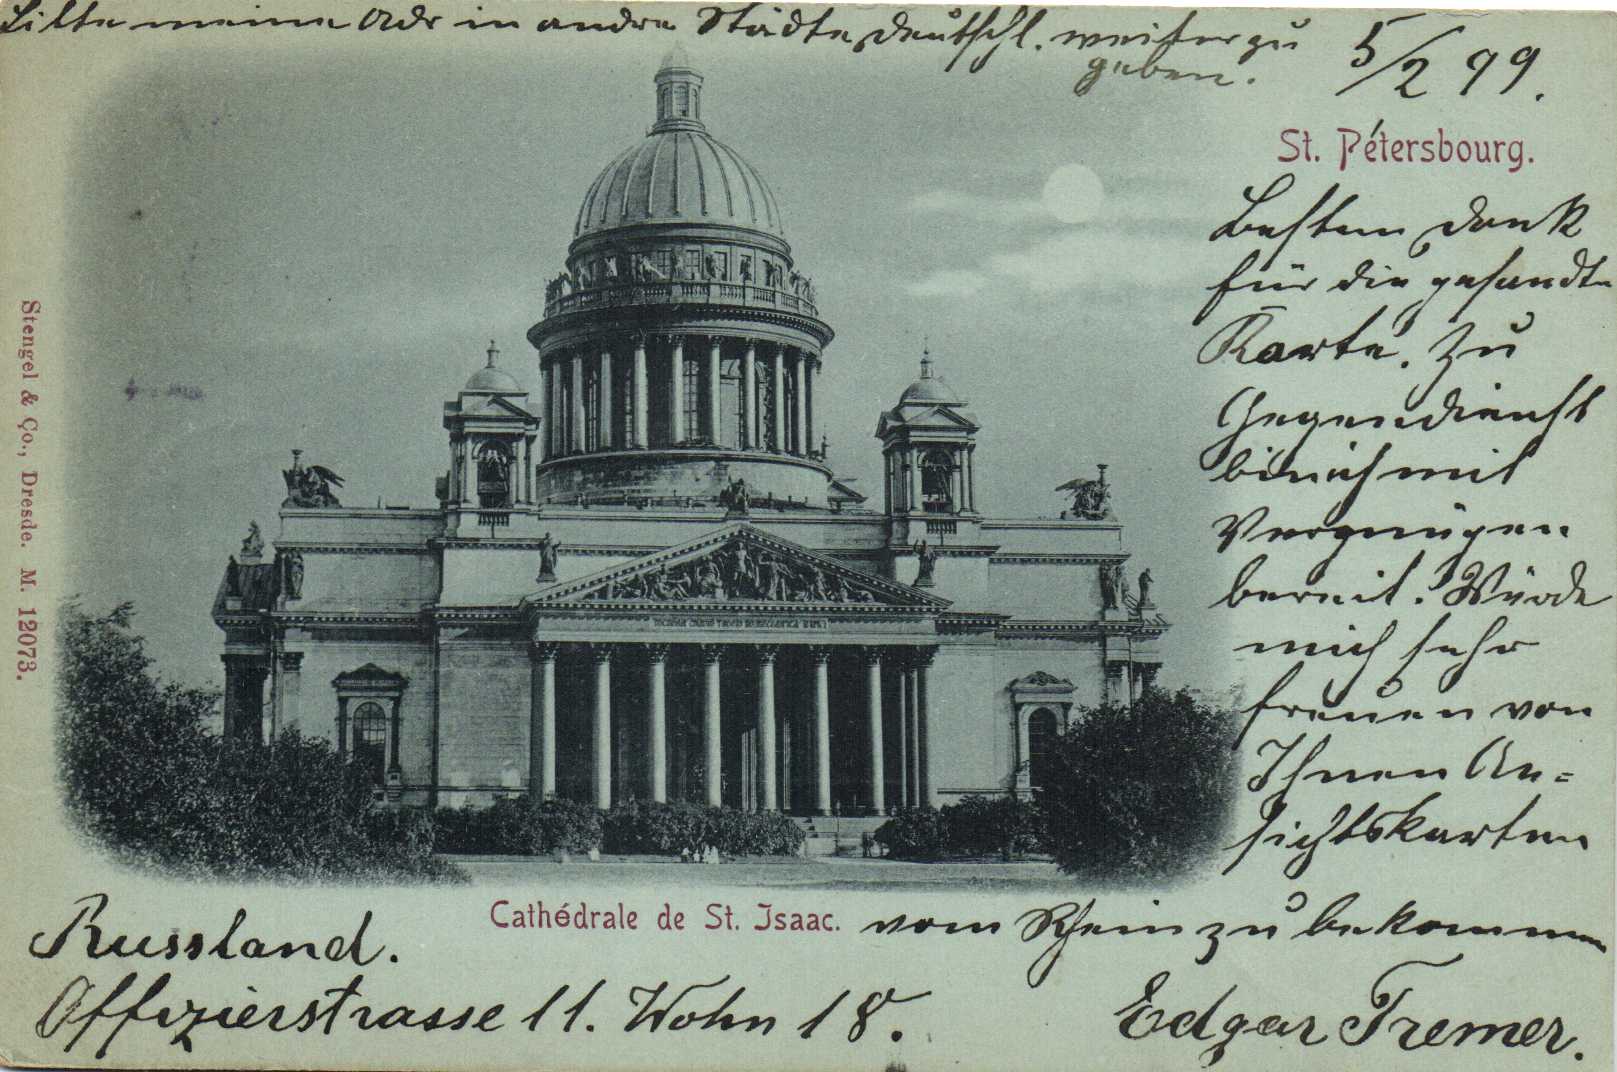 Bitte meine Adr in andre Städte Deutschl. weiter zu
geben.
5/2 99.
St. Pétersbourg.
Besten Dank
für die gesandte
Karte. Zu
Gegendienst
bin ich mit
Vergnügen
bereit. Würde
mich sehr
freuen von
Ihnen An=
sichtskarten
vom Rhein zu bekommen
Cathédrale de St. Isaac.
Edgar Tremer.
Russland.
Offizierstrasse 11. Wohn 18.
Stengel & Co., Dresde. M. 12073.